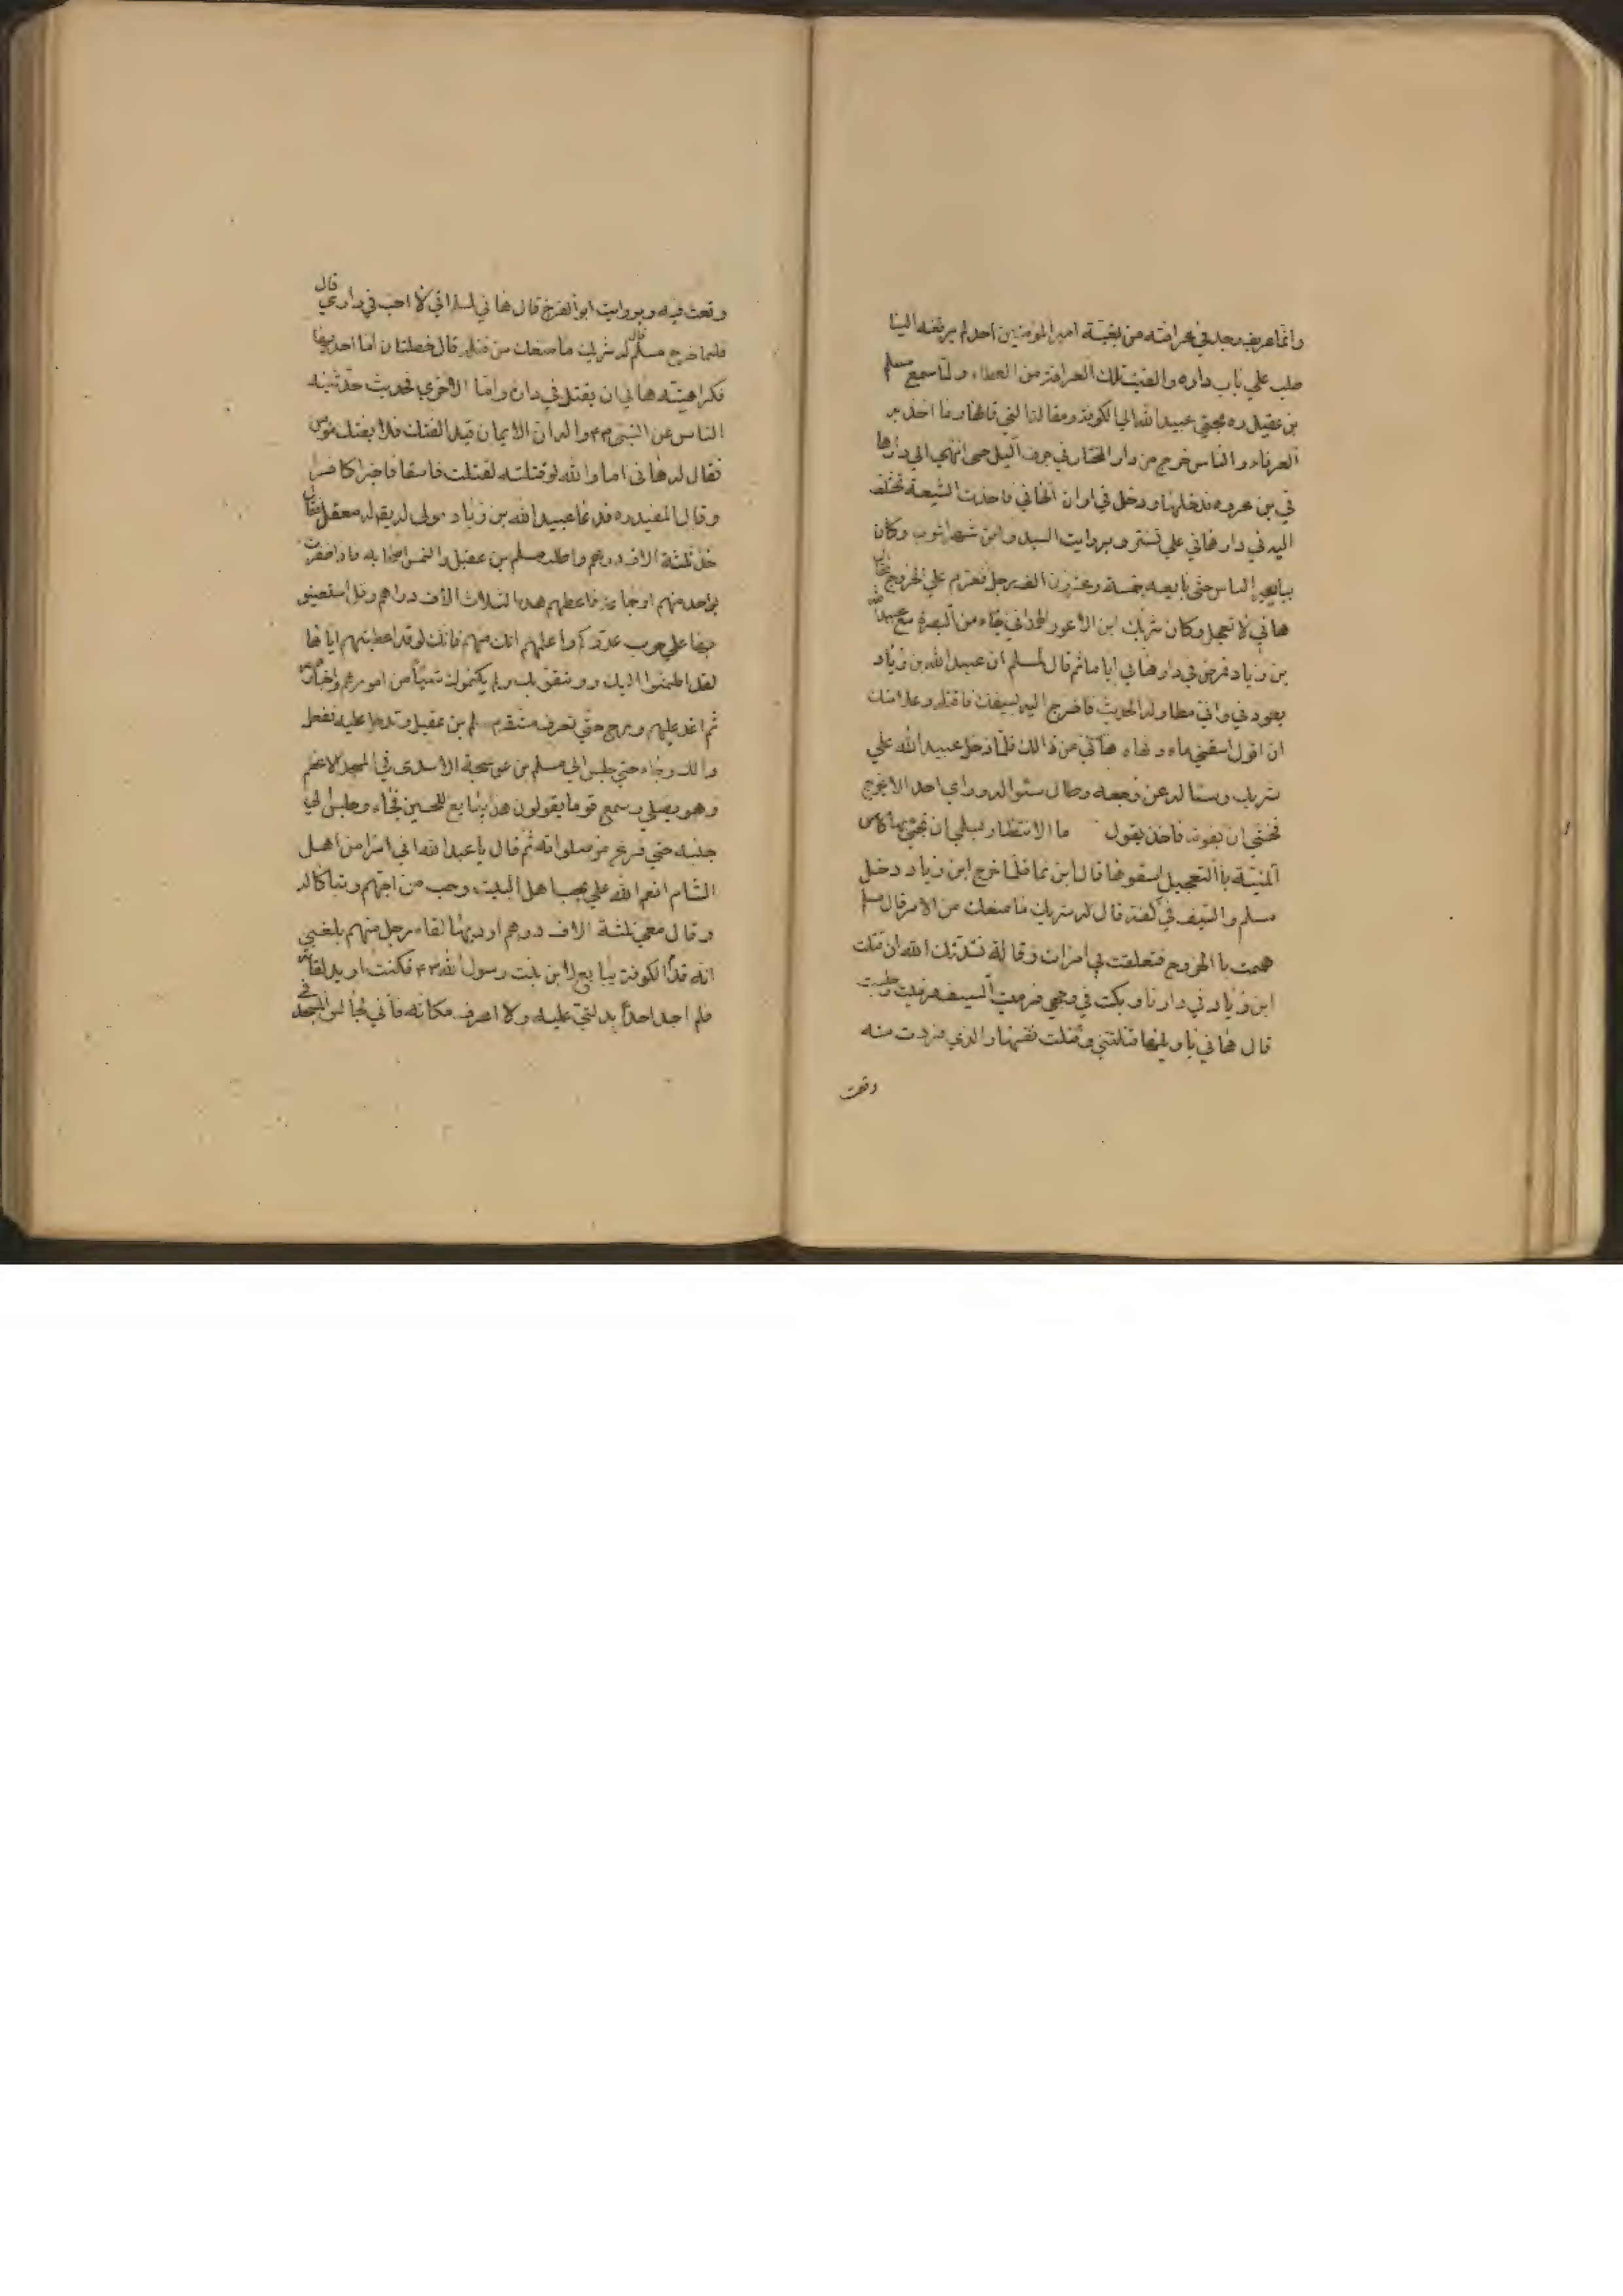 وانما عريف وجد في عرافته من بغية امير المؤمنين احد لم يرفعه الينا
صلب علي باب داره والغيت تلك العرافة من العطاء ولما سمع مسلم
بن عقيل ره مجئي عبيد الله الي الكوفة ومقالته التي قالها وما اخذ به
العرفاء والناس خرج من دار المختار في جوف اليل حتى انتهي الي دار ها
ني بن عروه فدخلها ودخل في اوان الهاني فاخذت الشيعة تختلف
اليه في دار هاني علي تستر وبروايت السيد وابن شهر اشوب وكان
يبايعه الناس حتى بايعه خمسة وعشرون الف رجل فعزم علي الخروج فقال
هاني لا تعجل وكان شريك ابن الاعور الهمداني جاء من البصرة مع عبيد الله
بن زياد فمرض في دار هاني اياما ثم قال لمسلم ان عبيد الله بن زياد
يعودني واني مطاوله الحديث فاخرج اليه بسيفك فاقتله وعلامتك
ان اقول اسقوني ماء ونهاه هاني عن ذالك فلما دخل عبيد الله علي
شريك وسئاله عن وجعه وطال سئواله وراي احد الا يخرج
فخشي ان يفوته فاخذ يقول ما الانتظار لسلمي ان تحييها كاس
المنية باالتعجيل اسقوها قال ابن نما فلما خرج ابن زياد دخل
مسلم والسيف في كفه قال له شريك ما منعك من الامر قال مسلم
هممت باالخروج فتعلقت بي امراة وقالة نشدتك الله ان قتلت
ابن زياد في دارنا وبكت في وجهي فرميت السيف وجلست
قال هاني يا ويلها قتلتني وقتلت نفسها والذي فررت منه
وقعت
وقعت فيه وبروايت ابو الفرج قال هاني لمسلم اني لا احب في داري قال
فلما خرج مسلم قال له شريك ما منعك من قتله قال خصلتان اما احديهما
فكراهيته هاني ان يقتل في داره واما الاخري فحديث حدثنيه
الناس عن النبي ص واله ان الايمان قيد الفتك فلا يفتك مؤمن
فقال له هاني اما والله لو قتلته لقتلت فاسقا فاجرا كافرا
وقال المفيد ره فدعا عبيد الله بن زياد مولى له يقال له معقل فقال
خذ ثلثة الاف درهم واطلب مسلم بن عقيل والتمس اصحابه فاذا ظفرت
بواحد منهم او جماعة فاعطهم هذه الثلاث الاف دراهم وقل استعينو
بها علي حرب عدوكم واعلمهم انك منهم فانك لو قد اعطيتهم اياها
لقد اطمئنوا اليك ووثقو بك ولم يكتموك شيئا من امورهم واخبارهم
ثم اغد عليهم ورح حتي تعرف مستقر مسلم بن عقيل وتدخل عليه ففعل
ذالك وجاء حتي جلس الي مسلم بن عوسجة الاسدي في المسجد الاعظم
وهو يصلي وسمع قوما يقولون هذا يبايع للحسين فجاء وجلس الي
جنبه حتي فرغ من صلواته ثم قال يا عبد الله اني امرء من اهل
الشام انعم الله علي بحب اهل البيت وحب من احبهم وتباكا له
وقال معي ثلثة الاف درهم اردت بها لقاء رجل منهم بلغني
انه قدم الكوفة يبايع لابن بنت رسول الله ص فكنت اريد لقائه
فلم اجد احدا يدلني عليه ولا اعرف مكانه فاني لجالس في المسجد